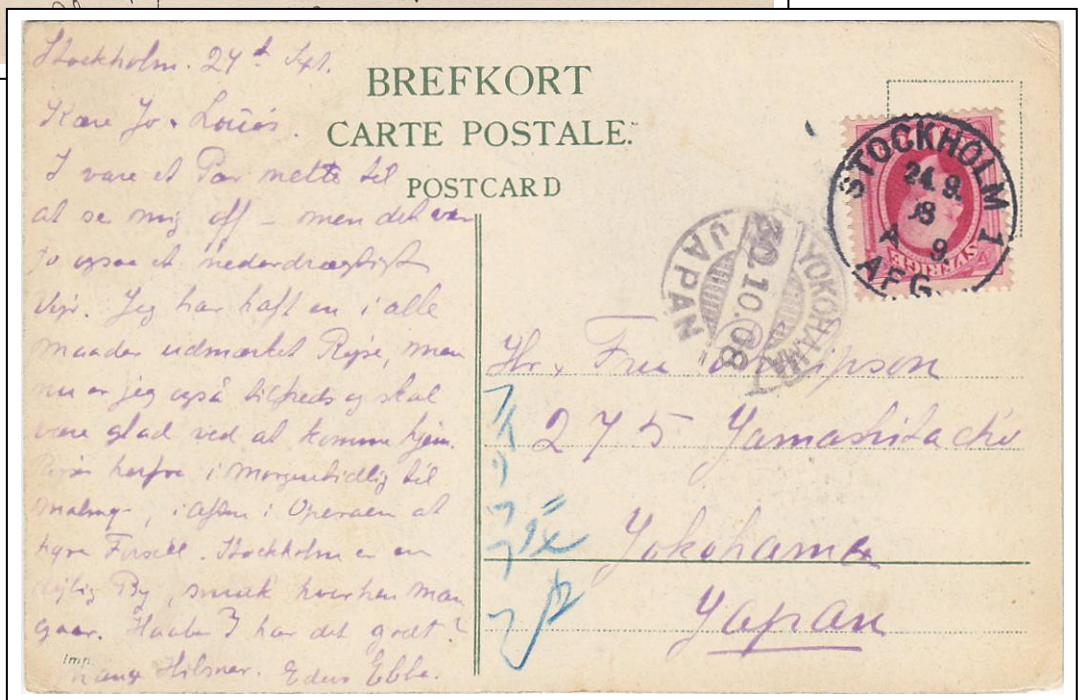 BREFKORT
CARTE POSTALE.
POSTCARD
Stockholm. 24d Sept.
Kære Jo & Louis.
I vare et Par nette til
at se mig off – men det var
jo ogsaa et nederdrægtigt
Vejr. Jeg har haft en i alle
maader udmærket Rejse, men
nu er jeg også tilfreds og skal
være glad ved at komme hjem.
Rejser herfra i Morgen tidlig til
Malmø, i Aften i Operaen at
høre Forsell. Stockholm er en
dejlig By, smuk hvorhen man
gaar. Haaber I har det godt?
Mange Hilsner. Eders Ebba.
Imp.
STOCKHOLM 1
24. 9.
08
A 9.
AFG.
SVERIGE
YOKOHAMA
30.10.08
JAPAN
Hr. Fru
275 Yamashitachō
Yokohama
Yapan